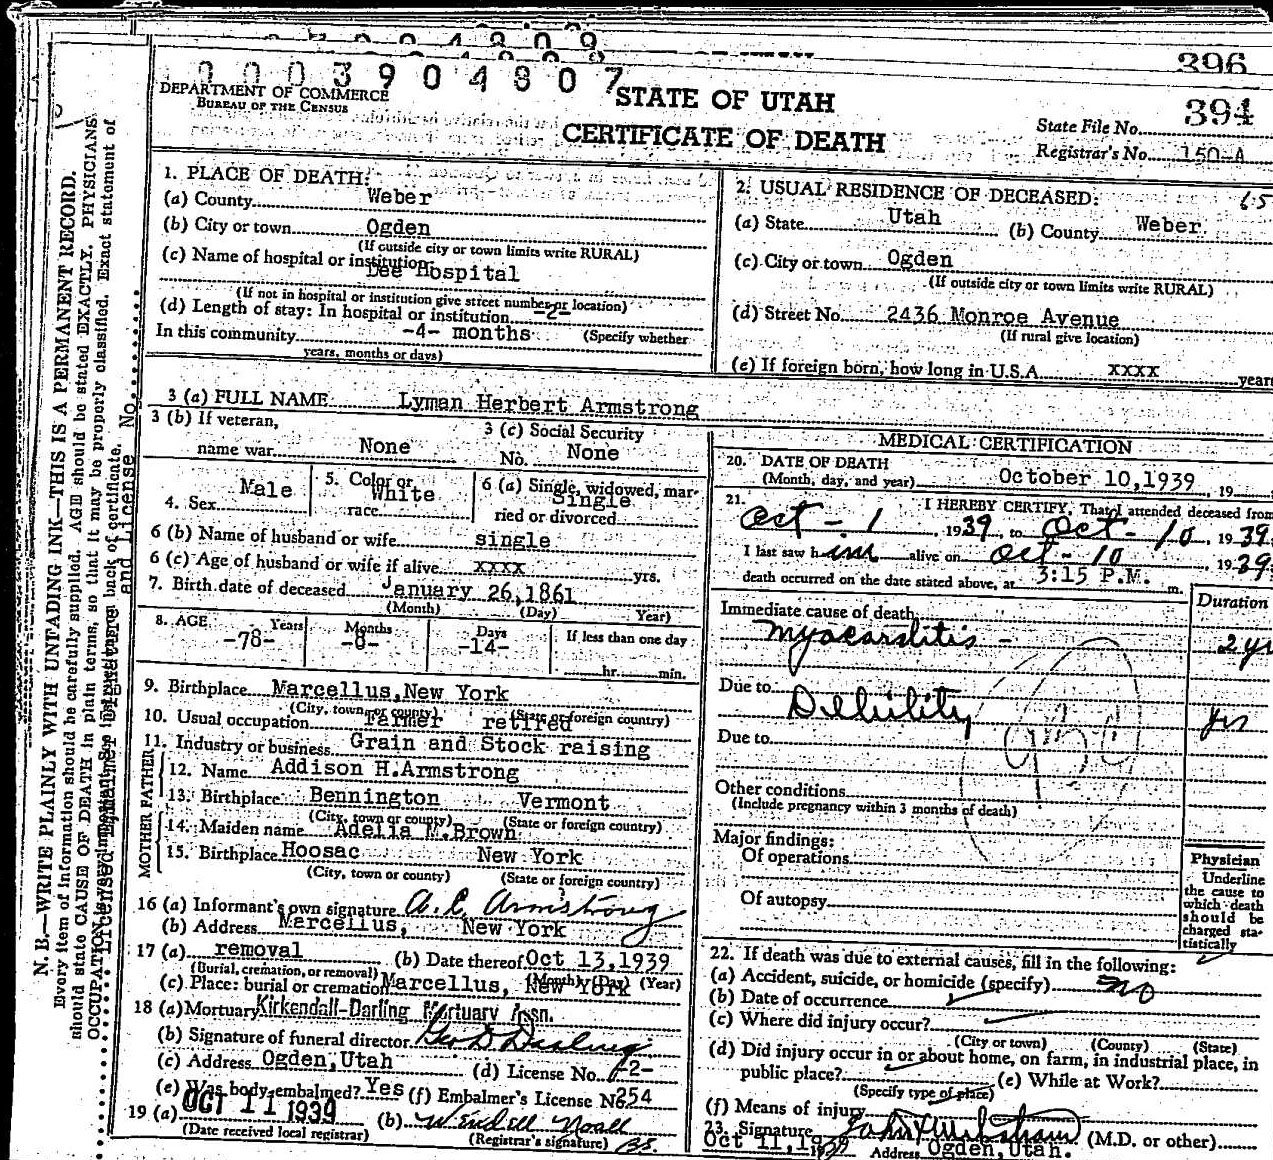 396
0003904807
DEPARTMENT OF COMMERCE
BUREAU OF THE CENSUS
STATE OF UTAH
CERTIFICATE OF DEATH
State File No. 394
Registrar's No. 150-A
N. B.—WRITE PLAINLY WITH UNFADING INK—THIS IS A PERMANENT RECORD.
Every item of information should be carefully supplied. AGE should be stated EXACTLY. PHYSICIANS
should state CAUSE OF DEATH in plain terms, so that it may be properly classified. Exact statement of
OCCUPATION is very important. See instructions on back of certificate.
and License No.
1. PLACE OF DEATH:
(a) County Weber
(b) City or town Ogden
(If outside city or town limits write RURAL)
(c) Name of hospital or institution:
Dee Hospital
(If not in hospital or institution give street number or location)
(d) Length of stay: In hospital or institution -2-
In this community -4- months (Specify whether
years, months or days)
2. USUAL RESIDENCE OF DECEASED:
(a) State Utah (b) County Weber
(c) City or town Ogden
(If outside city or town limits write RURAL)
(d) Street No. 2436 Monroe Avenue
(If rural give location)
(e) If foreign born, how long in U.S.A. xxxx years
3 (a) FULL NAME Lyman Herbert Armstrong
3 (b) If veteran,
name war None
3 (c) Social Security
No. None
4. Sex Male
5. Color or
race White
6 (a) Single, widowed, mar-
ried or divorced Single
6 (b) Name of husband or wife single
6 (c) Age of husband or wife if alive xxxx yrs.
7. Birth date of deceased January 26,1861
(Month) (Day) Year)
8. AGE Years Months Days If less than one day
-78- -8- -14-
hr. min.
9. Birthplace Marcellus, New York
(City, town or county) (State or foreign country)
10. Usual occupation Farmer retired
11. Industry or business Grain and Stock raising
FATHER
12. Name Addison H.Armstrong
13. Birthplace Bennington Vermont
(City, town or county) (State or foreign country)
MOTHER
14. Maiden name Adelia M.Brown
15. Birthplace Hoosac New York
(City, town or county) (State or foreign country)
16 (a) Informant's own signature A. C. Armstrong
(b) Address Marcellus, New York
17 (a) removal (b) Date thereof Oct 13,1939
(Burial, cremation, or removal) (Month) (Day) (Year)
(c) Place: burial or cremation Marcellus, New York
18 (a) Mortuary Kirkendall-Darling Mortuary Assn.
(b) Signature of funeral director Geo D Darling
(c) Address Ogden,Utah (d) License No. F2-
(e) Was body embalmed? Yes (f) Embalmer's License No. 254
19 (a) OCT 11 1939 (b) Wendell Noall
(Date received local registrar) (Registrar's signature)
MEDICAL CERTIFICATION
20. DATE OF DEATH
(Month, day, and year) October 10,1939, 19
21. I HEREBY CERTIFY, That I attended deceased from
Oct - 1, 1939, to Oct - 10, 1939.
I last saw him alive on Oct - 10, 1939.
death occurred on the date stated above, at 3:15 P.M. m.
Duration
Immediate cause of death
Myocarditis - 2 yrs
Due to
Debility yrs
Due to
Other conditions
(Include pregnancy within 3 months of death)
Major findings:
Of operations
Of autopsy
Physician
Underline
the cause to
which death
should be
charged sta-
tistically
22. If death was due to external causes, fill in the following:
(a) Accident, suicide, or homicide (specify) No
(b) Date of occurrence
(c) Where did injury occur?
(City or town) (County) (State)
(d) Did injury occur in or about home, on farm, in industrial place, in
public place?
(Specify type of place) (e) While at Work?
(f) Means of injury
23. Signature (M.D. or other)
Oct 11,1939 Address Ogden,Utah.